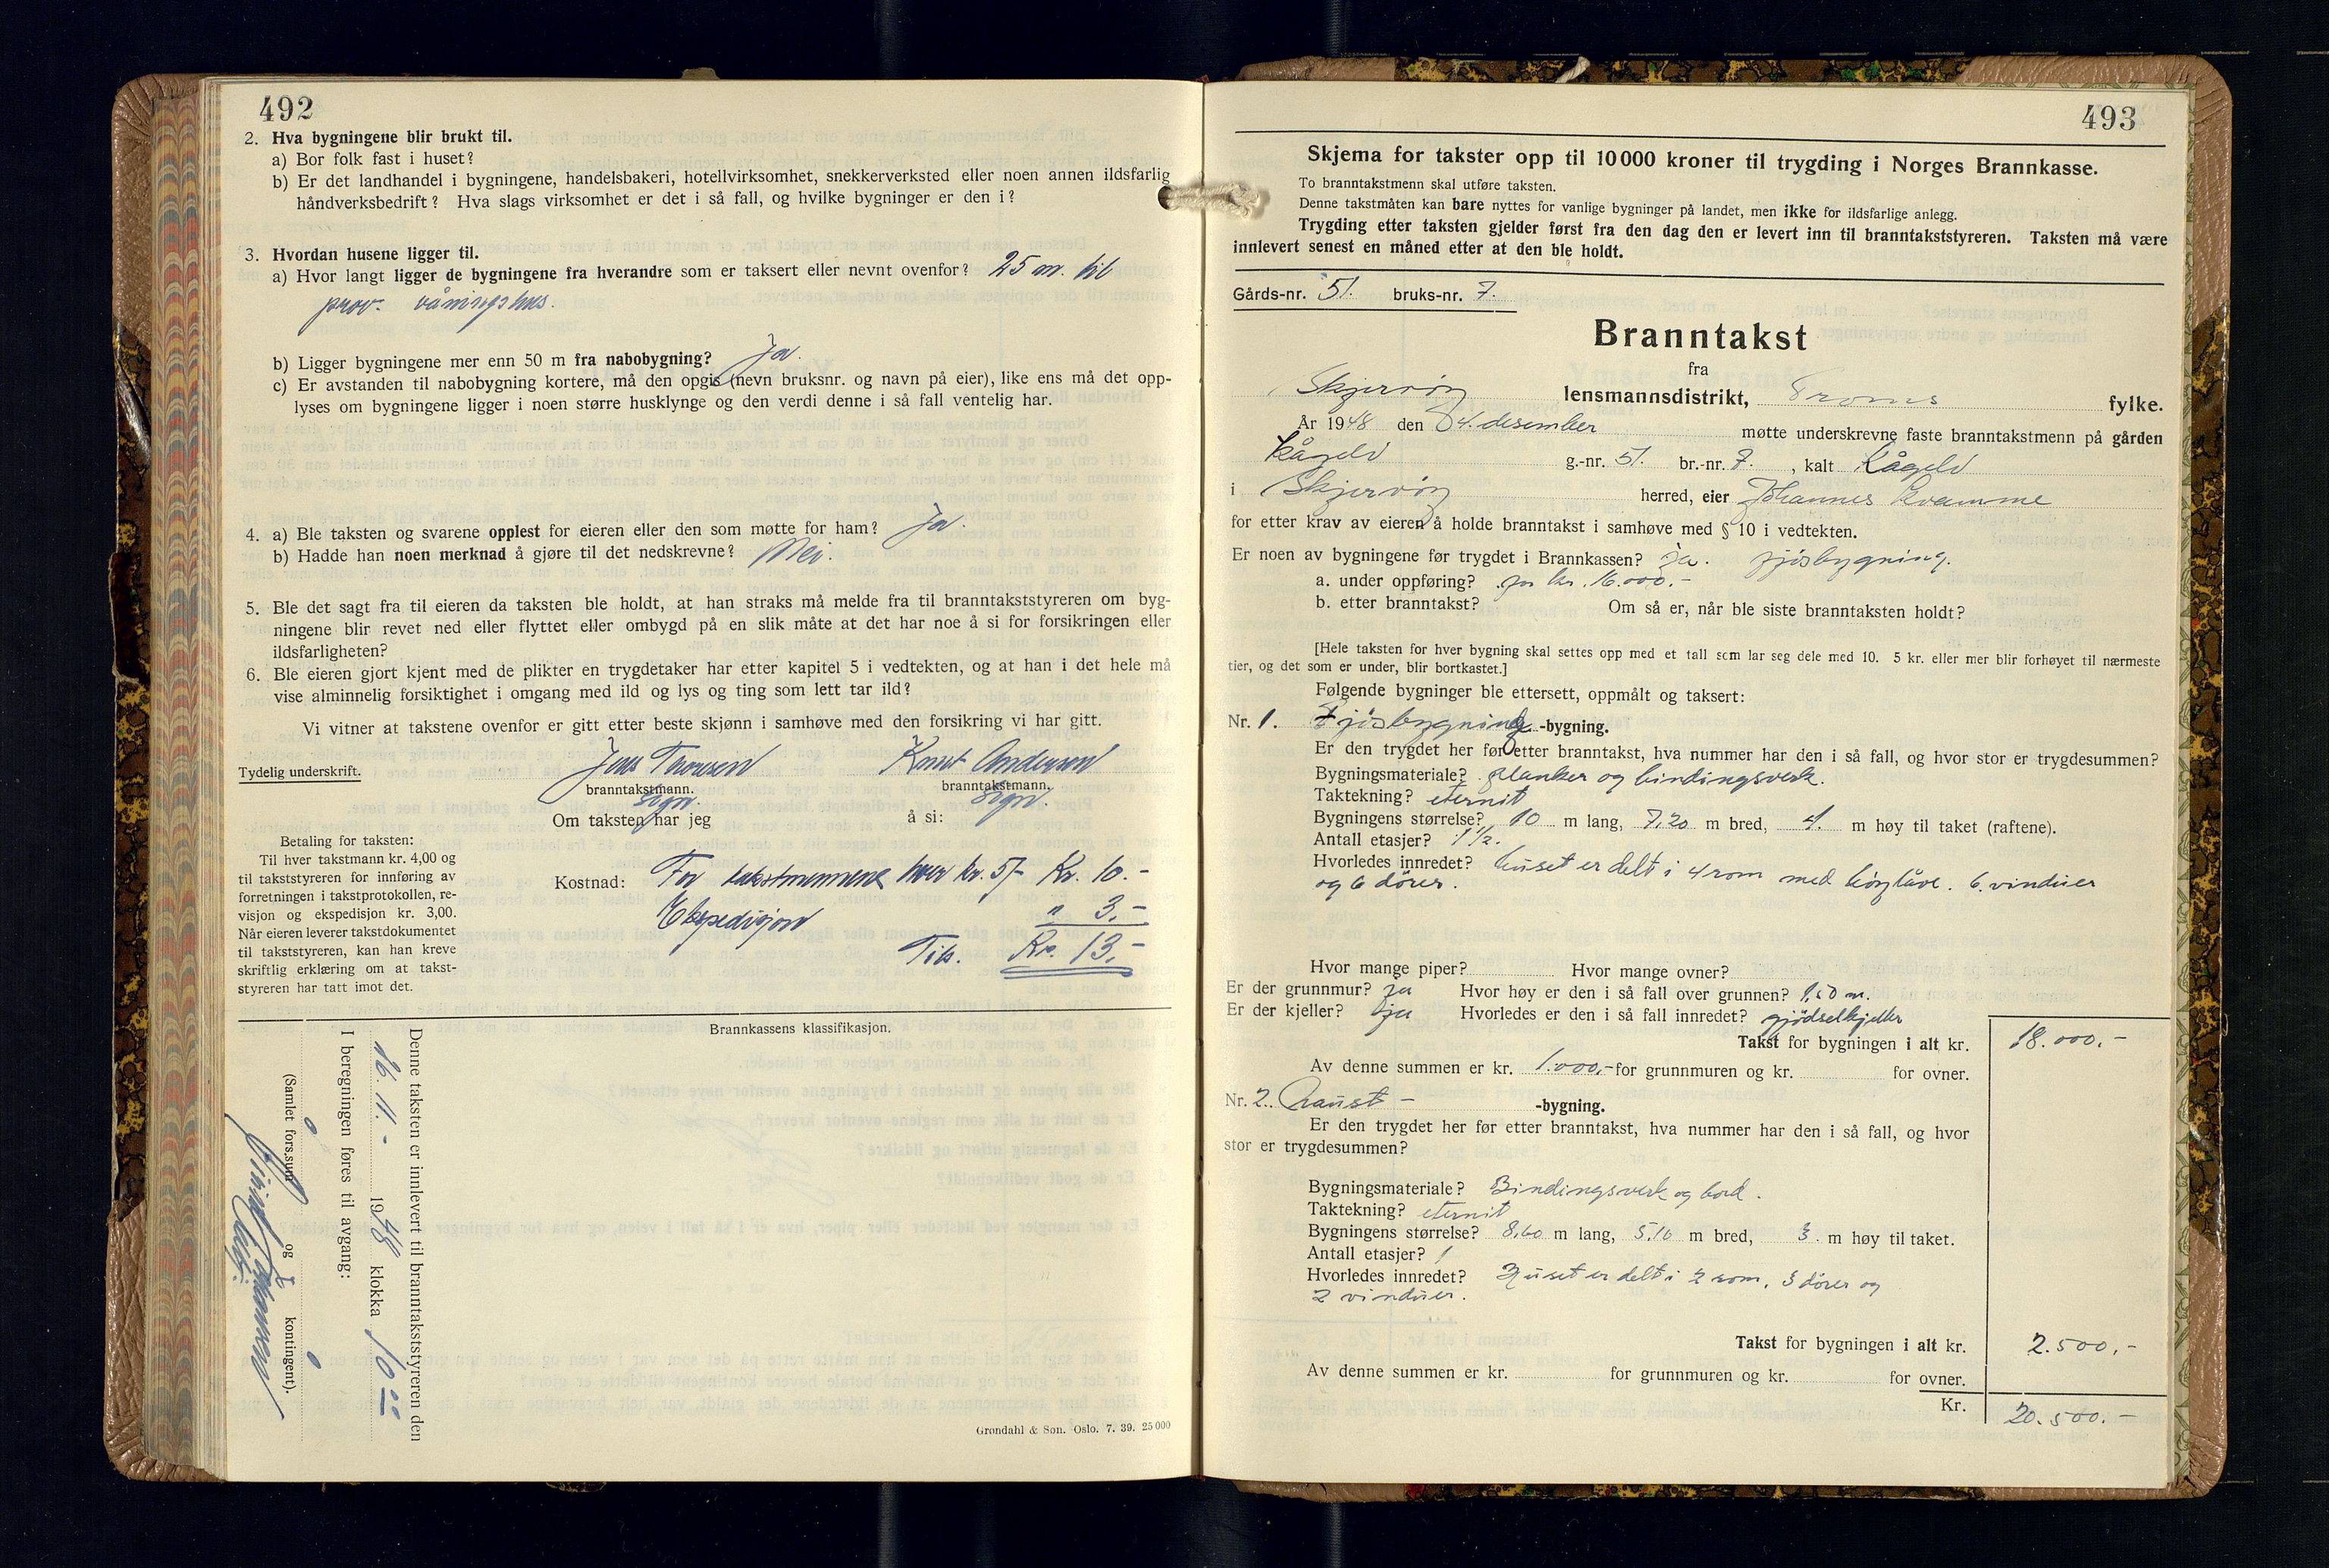 492
2. Hva bygningene blir brukt til.
a) Bor folk fast i huset?
b) Er det landhandel i bygningene, handelsbakeri, hotellvirksomhet, snekkerverksted eller noen annen ildsfarlig
håndverksbedrift? Hva slags virksomhet er det i så fall, og hvilke bygninger er den i?
3. Hvordan husene ligger til.
a) Hvor langt ligger de bygningene fra hverandre som er taksert eller nevnt ovenfor? 25 m. til
prov. våningshus.
b) Ligger bygningene mer enn 50 m fra nabobygning? Ja.
c) Er avstanden til nabobygning kortere, må den opgis (nevn bruksnr. og navn på eier), like ens må det opp-
lyses om bygningene ligger i noen større husklynge og den verdi denne i så fall ventelig har.
4. a) Ble taksten og svarene opplest for eieren eller den som møtte for ham? Ja.
b) Hadde han noen merknad å gjøre til det nedskrevne? Nei.
5. Ble det sagt fra til eieren da taksten ble holdt, at han straks må melde fra til branntakststyreren om byg-
ningene blir revet ned eller flyttet eller ombygd på en slik måte at det har noe å si for forsikringen eller
ildsfarligheten?
6. Ble eieren gjort kjent med de plikter en trygdetaker har etter kapitel 5 i vedtekten, og at han i det hele må
vise alminnelig forsiktighet i omgang med ild og lys og ting som lett tar ild?
Vi vitner at takstene ovenfor er gitt etter beste skjønn i samhøve med den forsikring vi har gitt.
Tydelig underskrift. Jens Thomsen Knut Andersen
branntakstmann. branntakstmann.
sign. sign.
Om taksten har jeg å si:
Betaling for taksten:
Til hver takstmann kr. 4,00 og
til takststyreren for innføring av
forretningen i takstprotokollen, re-
visjon og ekspedisjon kr. 3,00.
Når eieren leverer takstdokumentet
til takststyreren, kan han kreve
skriftlig erklæring om at takst-
styreren har tatt imot det.
Kostnad: For takstmennene hver kr. 5,- Kr. 10.-
Ekspedisjon " 3,-
Tils. Kr. 13,-
Brannkassens klassifikasjon.
Denne taksten er innlevert til branntakststyreren den
26. 11. - 1948 klokka 10 00
I beregningen føres til avgang:
(Samlet fors.sum og kontingent).
Grøndahl & Søn. Oslo. 7. 39. 25 000
493
Skjema for takster opp til 10 000 kroner til trygding i Norges Brannkasse.
To branntakstmenn skal utføre taksten.
Denne takstmåten kan bare nyttes for vanlige bygninger på landet, men ikke for ildsfarlige anlegg.
Trygding etter taksten gjelder først fra den dag den er levert inn til branntakststyreren. Taksten må være
innlevert senest en måned etter at den ble holdt.
Gårds-nr. 51. bruks-nr. 7.
Branntakst
fra
Skjervøy lensmannsdistrikt, Troms fylke.
År 1948 den 4. desember møtte underskrevne faste branntakstmenn på gården
Kågelv g.-nr. 51. br.-nr. 7. , kalt Kågelv
i Skjervøy herred, eier Johannes Kvamme
for etter krav av eieren å holde branntakst i samhøve med § 10 i vedtekten.
Er noen av bygningene før trygdet i Brannkassen? ja. fjøsbygning.
a. under oppføring? for kr. 16.000.-
b. etter branntakst? Om så er, når ble siste branntaksten holdt?
[Hele taksten for hver bygning skal settes opp med et tall som lar seg dele med 10. 5 kr. eller mer blir forhøyet til nærmeste
tier, og det som er under, blir bortkastet.]
Følgende bygninger ble ettersett, oppmålt og taksert:
Nr. 1. Fjøsbygning -bygning.
Er den trygdet her før etter branntakst, hva nummer har den i så fall, og hvor stor er trygdesummen?
Bygningsmateriale? planker og bindingsverk.
Taktekning? eternit
Bygningens størrelse? 10 m lang, 7,20 m bred, 4. m høy til taket (raftene).
Antall etasjer? 1 1/2.
Hvorledes innredet? huset er delt i 4 rom med høylåve. 6. vinduer
og 6 dører.
Hvor mange piper? Hvor mange ovner?
Er der grunnmur? ja Hvor høy er den i så fall over grunnen? 1,50 m.
Er der kjeller? ja Hvorledes er den i så fall innredet? gjødselkjeller
Takst for bygningen i alt kr. 18.000.-
Av denne summen er kr. 1.000,- for grunnmuren og kr. for ovner.
Nr. 2. Naust - -bygning.
Er den trygdet her før etter branntakst, hva nummer har den i så fall, og hvor
stor er trygdesummen?
Bygningsmateriale? Bindingsverk og bord.
Taktekning? eternit
Bygningens størrelse? 8,60 m lang, 5,10 m bred, 3. m høy til taket.
Antall etasjer? 1
Hvorledes innredet? Huset er delt i 2 rom, 3 dører og
2 vinduer.
Takst for bygningen i alt kr. 2.500,-
Av denne summen er kr. for grunnmuren og kr. for ovner.
Kr. 20.500.-